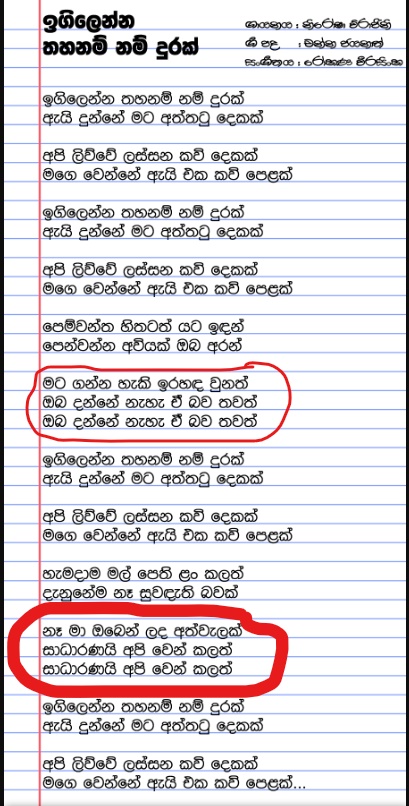 ඉගිලෙන්න
තහනම් නම් දුරක්
ගායනය : නිරෝෂා විරාජිනි
ගී පද : චන්න ජයනාත්
සංගීතය : රෝහණ වීරසිංහ
ඉගිලෙන්න තහනම් නම් දුරක්
ඇයි දුන්නේ මට අත්තටු දෙකක්
අපි ලිව්වේ ලස්සන කවි දෙකක්
මගෙ වෙන්නේ ඇයි එක කවි පෙළක්
ඉගිලෙන්න තහනම් නම් දුරක්
ඇයි දුන්නේ මට අත්තටු දෙකක්
අපි ලිව්වේ ලස්සන කවි දෙකක්
මගෙ වෙන්නේ ඇයි එක කවි පෙළක්
පෙම්වන්ත හිතටත් යට ඉඳන්
පෙන්වන්න අවියක් ඔබ අරන්
මට ගන්න හැකි ඉරහඳ වුනත්
ඔබ දන්නේ නැහැ ඒ බව තවත්
ඔබ දන්නේ නැහැ ඒ බව තවත්
ඉගිලෙන්න තහනම් නම් දුරක්
ඇයි දුන්නේ මට අත්තටු දෙකක්
අපි ලිව්වේ ලස්සන කවි දෙකක්
මගෙ වෙන්නේ ඇයි එක කවි පෙළක්
හැමදාම මල් පෙති ළං කලත්
දැනුනේම නෑ සුවඳැති බවක්
නෑ මා ඔබෙන් ලද අත්වැලක්
සාධාරණයි අපි වෙන් කලත්
සාධාරණයි අපි වෙන් කලත්
ඉගිලෙන්න තහනම් නම් දුරක්
ඇයි දුන්නේ මට අත්තටු දෙකක්
අපි ලිව්වේ ලස්සන කවි දෙකක්
මගෙ වෙන්නේ ඇයි එක කවි පෙළක්...